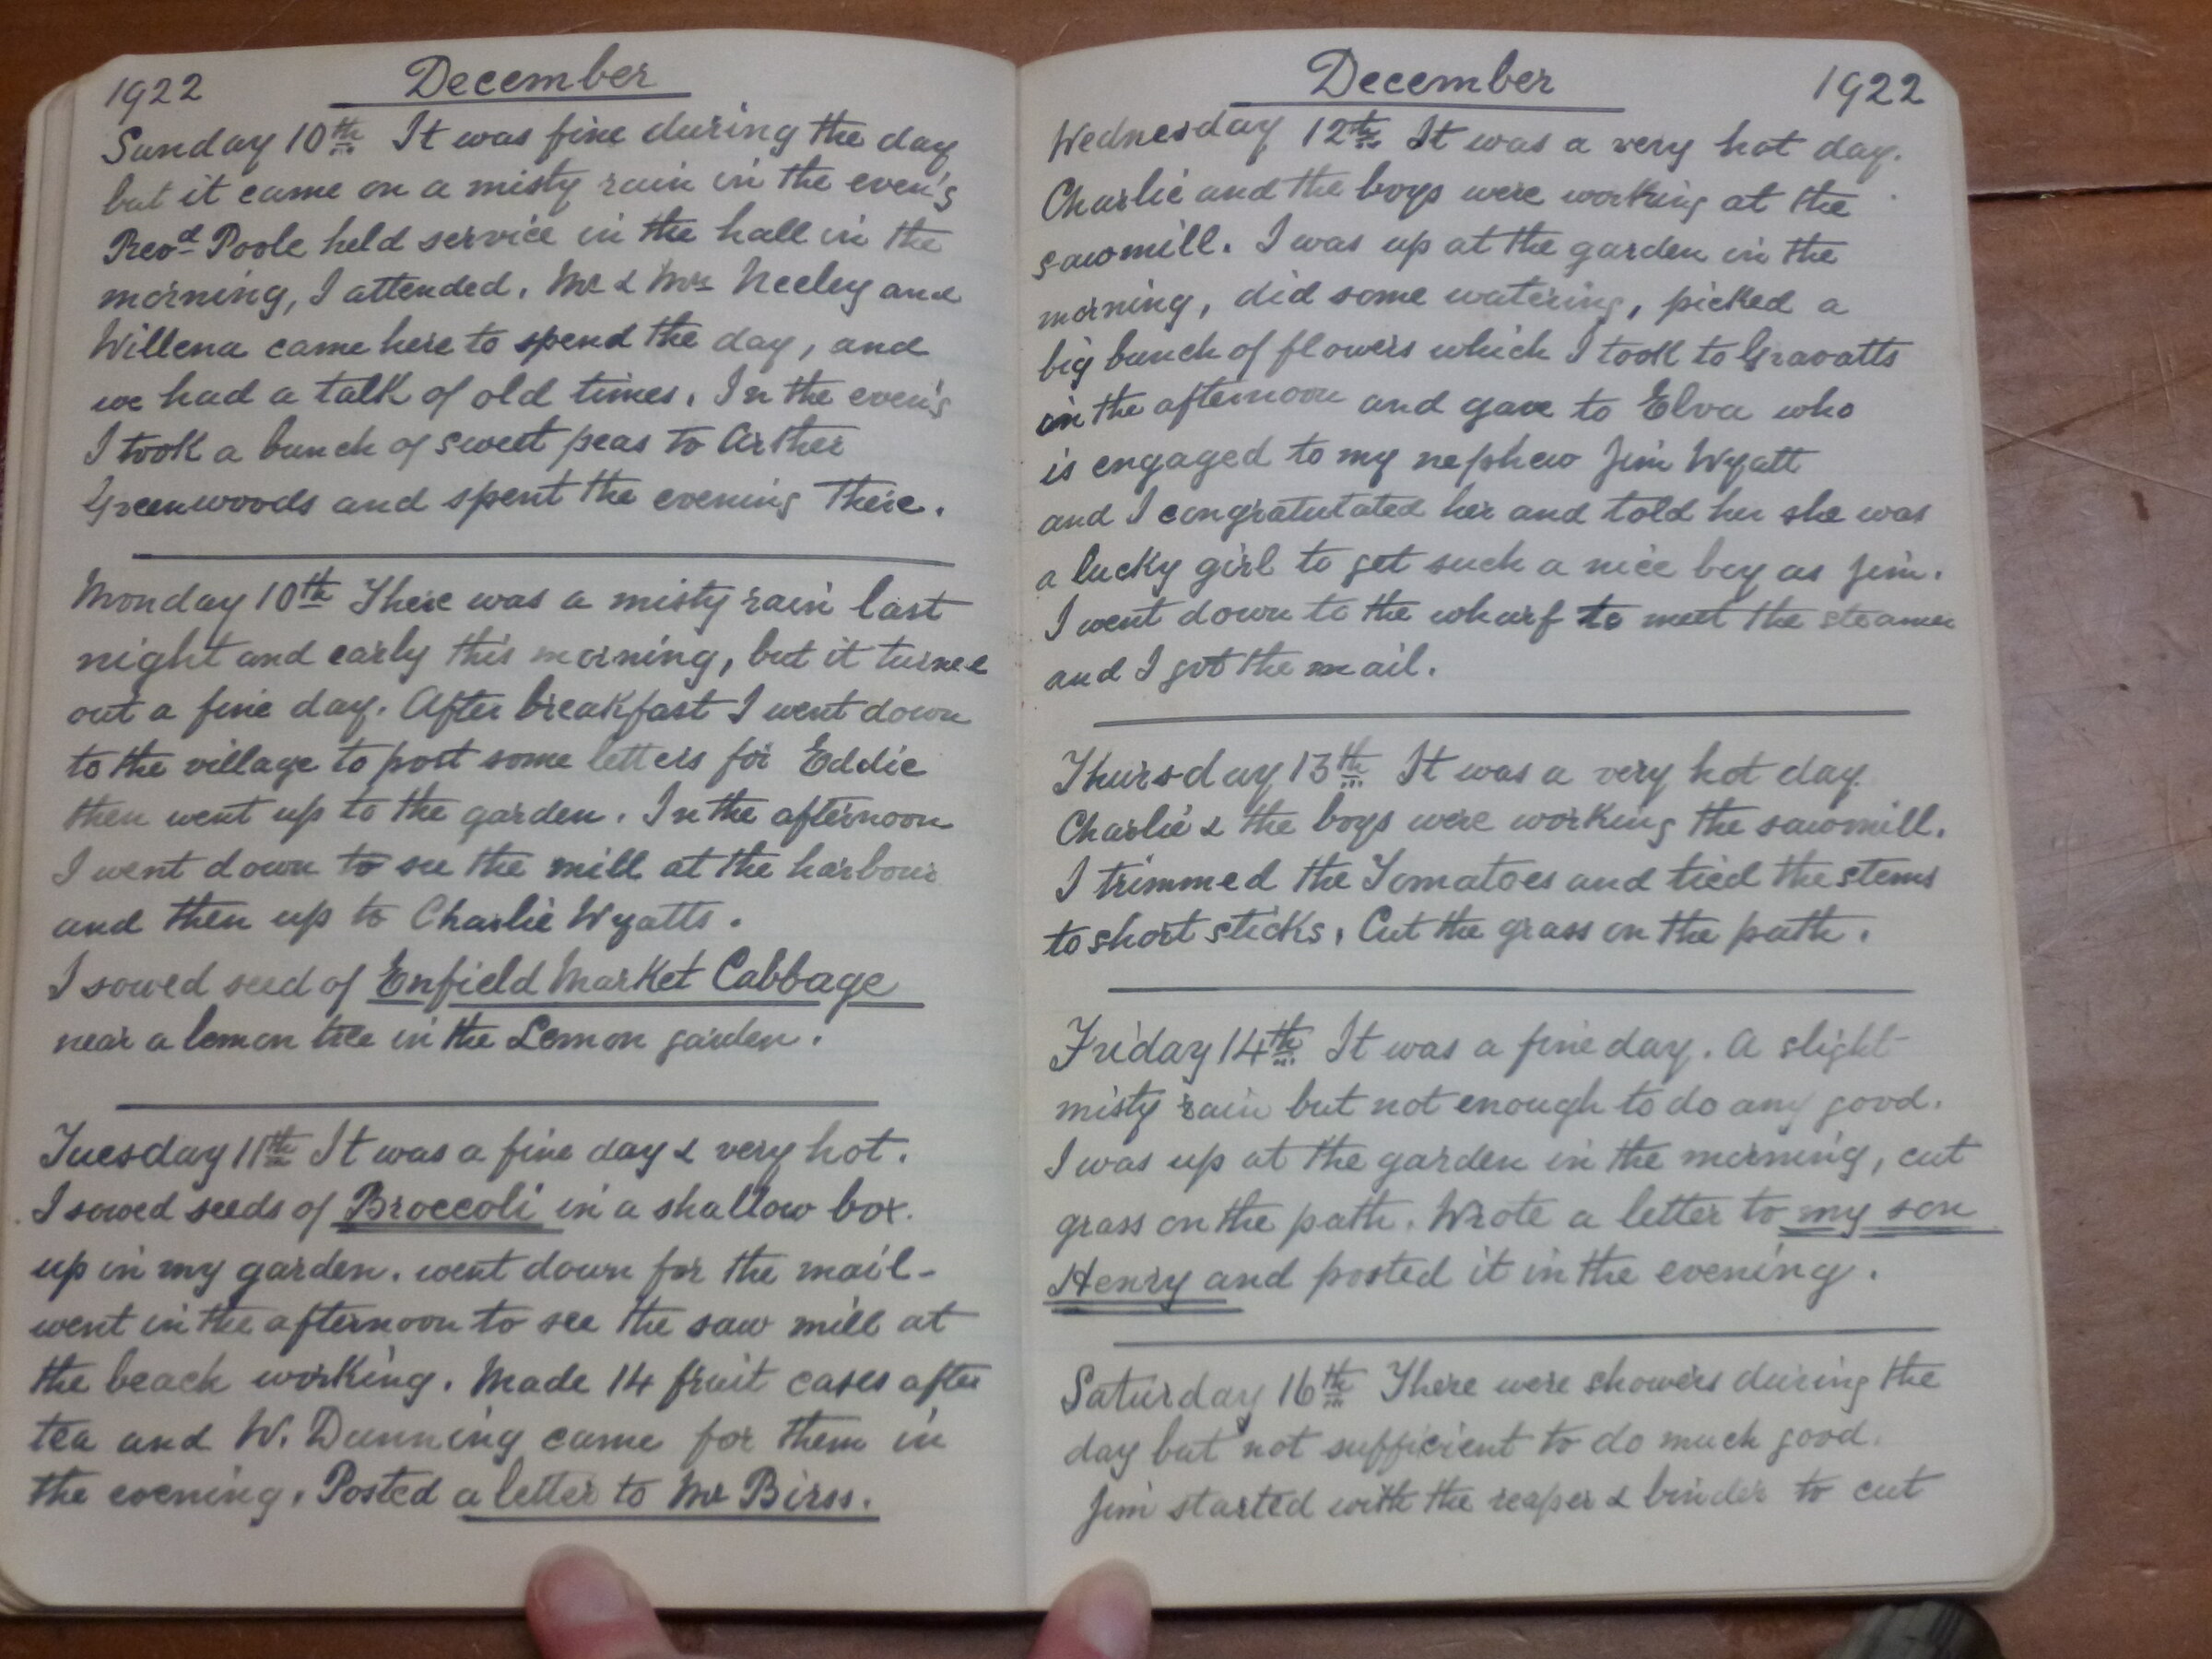 1922 December
Sunday 10th It was fine during the day
but it came on a misty rain in the even'g
Revd Poole held service in the hall in the
morning, I attended. Mr & Mrs Neeley and
Willena came here to spend the day, and
we had a talk of old times. In the even'g
I took a bunch of sweet peas to Arther
Greenwoods and spent the evening There.
Monday 10th There was a misty rain last
night and early this morning, but it turned
out a fine day. After breakfast I went down
to the village to post some letters for Eddie
then went up to the garden. In the afternoon
I went down to see the mill at the harbour
and then up to Charlie Wyatts.
I sowed seed of Enfield Market Cabbage
near a lemon tree in the Lemon garden.
Tuesday 11th It was a fine day & very hot.
I sowed seeds of Broccoli in a shallow box.
up in my garden. went down for the mail-
went in the afternoon to see the saw mill at
the beach working. Made 14 fruit cases after
tea and W. Dunning came for them in
the evening. Posted a letter to Mr Birss.
December 1922
Wednesday 12th It was a very hot day.
Charlie and the boys were working at the
sawmill. I was up at the garden in the
morning, did some watering, picked a
big bunch of flowers which I took to Gravatts
in the afternoon and gave to Elva who
is engaged to my nephew Jim Wyatt
and I congratutated her and told her she was
a lucky girl to get such a nice boy as Jim.
I went down to the wharf to meet the steamer
and I got the mail.
Thursday 13th It was a very hot day.
Charlie & the boys were working the sawmill.
I trimmed the Tomatoes and tied the stems
to short sticks. Cut the grass on the path.
Friday 14th It was a fine day. A slight
misty rain but not enough to do any good.
I was up at the garden in the morning, cut
grass on the path. Wrote a letter to my son
Henry and posted it in the evening.
Saturday 16th There were showers during the
day but not sufficient to do much good.
Jim started with the reaper & binder to cut